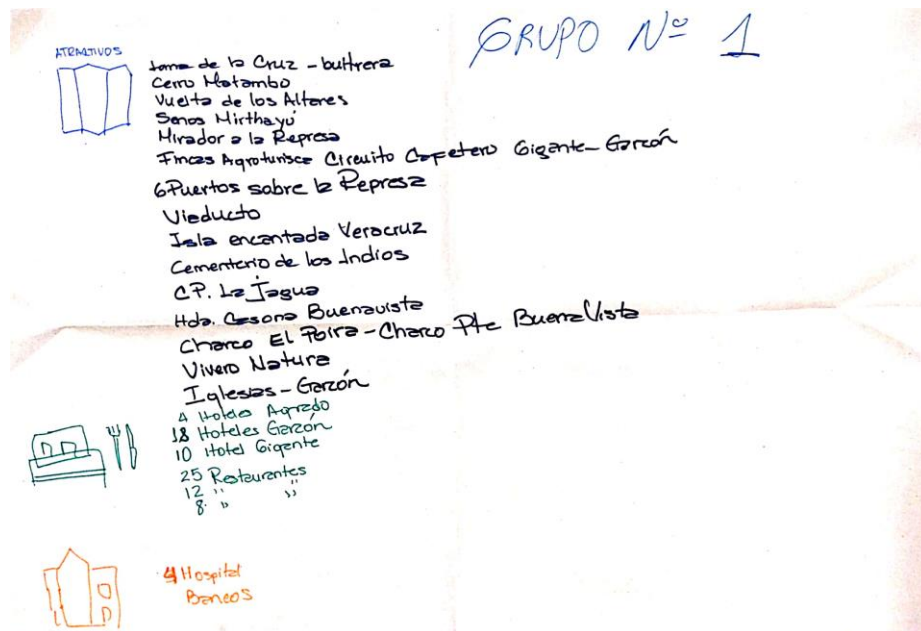 GRUPO Nº 1
ATRACTIVOS
Loma de la Cruz - buitrera
Cerro Matambo
Vuelta de los Altares
Senos Mirthayú
Mirador a la Represa
Fincas Agroturisce Circuito Cafetero Gigante - Garzón
6 Puertos sobre la Represa
Viaducto
Isla encantada Veracruz
Cementerio de los Indios
CP. La Jagua
Hda. Casona Buenavista
Charco El Poira - Charco Pte Buena Vista
Vivero Natura
Iglesias - Garzón
4 Hoteles Agrado
18 Hoteles Garzón
10 Hotel Gigante
25 Restaurantes
12 " "
8. " "
4 Hospital
Bancos